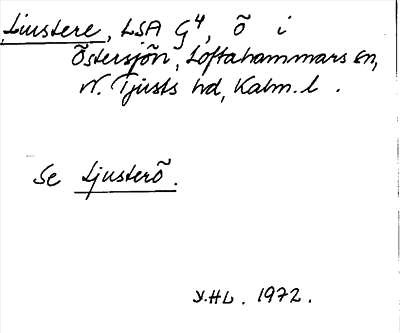 Liustere, LSA G4, Ö i
Östersjön, Loftahammars sn,
N. Tjusts hd, Kalm. l.
Se Ljusterö.
Y.HL. 1972.